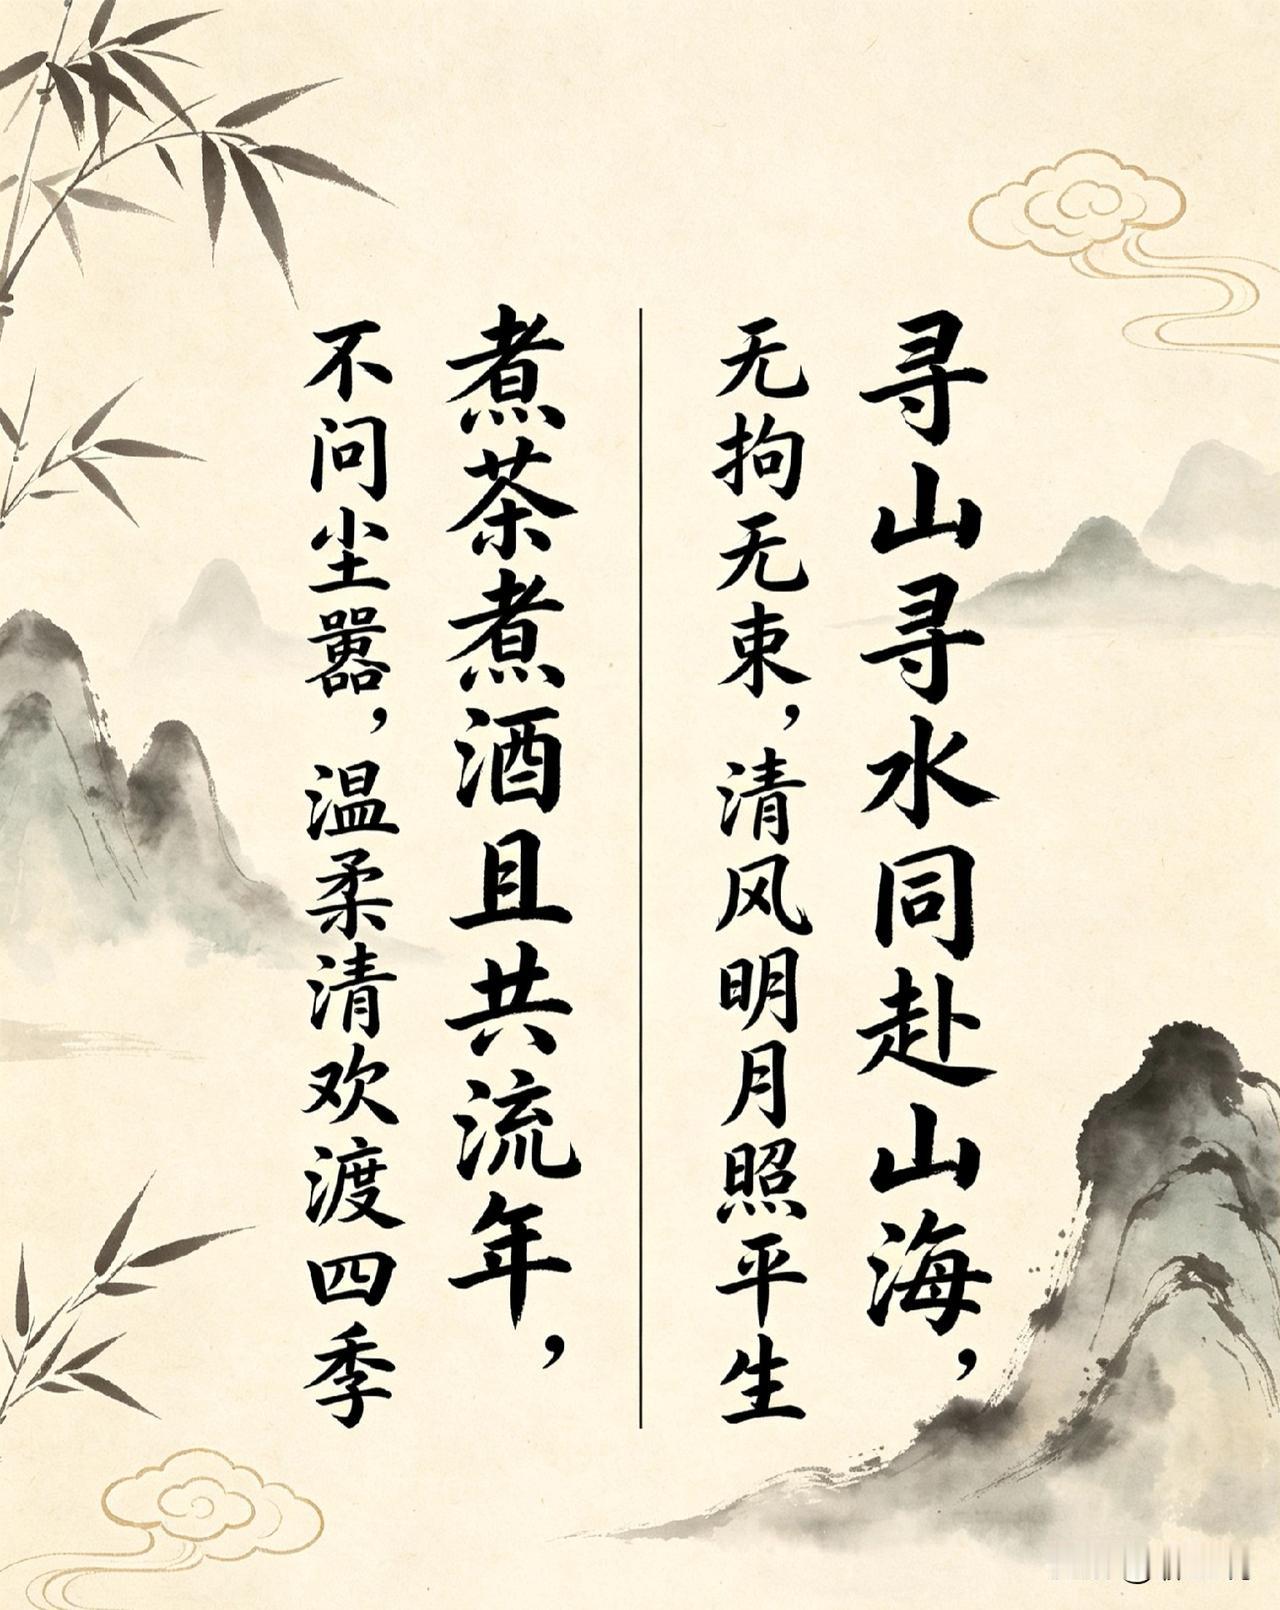 寻山寻水同赴山海，
无拘无束，清风明月照平生
煮茶煮酒且共流年，
不问尘嚣，温柔清欢渡四季